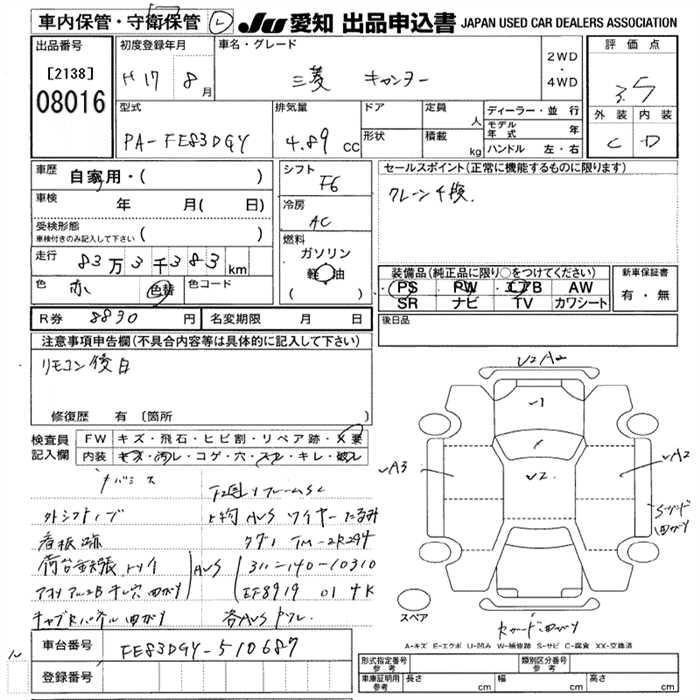 車内保管・守衛保管 L JU 愛知 出品申込書 JAPAN USED CAR DEALERS ASSOCIATION
出品番号
[2138]
08016
初度登録年月
H17 8月
車名・グレード
三菱 キャンター
2WD
・
4WD
評価点
3.5
外装 内装
C D
型式
PA-FE83DGY
排気量
4.89 cc
ドア
形状
定員 人
積載 kg
ディーラー・並行
モデル年式 年
ハンドル 左・右
車歴
自家用・( )
車検 年 月( 日)
受検形態
車検付きのみ記入して下さい ( )
走行 83万3千383km
色 赤 色替
色コード
シフト
F6
冷房
AC
燃料
ガソリン
軽油
( )
セールスポイント(正常に機能するものに限ります)
クレーン4段.
装備品(純正品に限り○をつけてください)
PS PW エアB AW
SR ナビ TV カワシート
新車保証書
有・無
R券 8830 円
名変期限 月 日
後日品
注意事項申告欄(不具合内容等は具体的に記入して下さい)
リモコン後日
修復歴 有(箇所
検査員記入欄
FW キズ・飛石・ヒビ割・リペア跡・X要
内装 キズ・汚レ・コゲ・穴・スレ・キレ・破レ
下廻リフレームSC
外シフトノブ
上物AUS ワイヤーたるみ
看板跡
タダノ TM-ZR294
AUS
311-140-10310
EF8919 01 4K
キャブRパネル凹ガリ
各AUS
車台番号
FE83DGY-510687
登録番号
V2 A2
V1
V2
VA3
VA2
スペア
A-キズ E-エクボ U-凹み W-補修跡 S-サビ C-腐食 XX-交換済
形式指定番号 参考
類別区分番号 参考
車庫証明用 参考 長さ cm 幅 cm 高さ cm